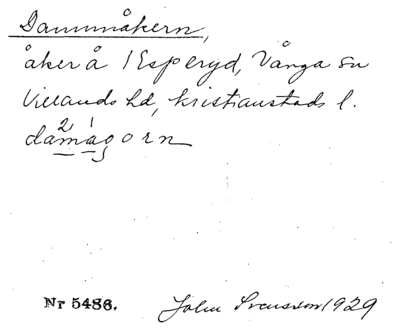 Dammåkern,
åker å 1 Esperyd, Vånga sn
Villands hd, kristianstads l.
damágorn
Nr 5486. John Svensson 1929